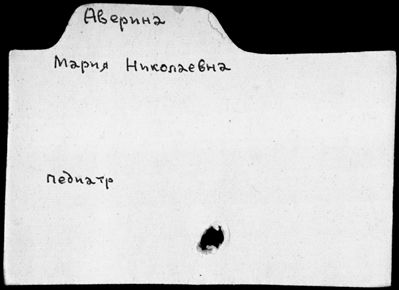 Аверина
Мария Николаевна
педиатр